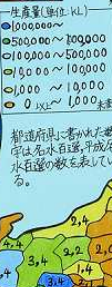 生産量(単位:KL)
1,000,000〜
500,000〜 800,000
100,000〜 500,000
10,000〜 100,000
1,000〜 10,000
0 KL〜 1,000
都道府県に書かれた数
字は名水百選,平成名
水百選の数を表してい
る。
4,4
2,4
2,4
3,4
3,4
2